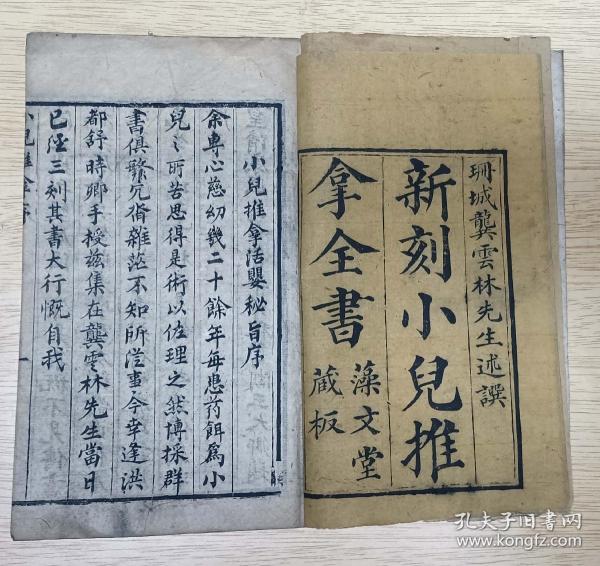 珊城龔雲林先生述譔
新刻小兒推
拿全書
藻文堂
蔵板
小兒推拿活嬰秘旨序
余專心慈幼幾二十餘年每患药餌為小
兒〻所苦思得是術以佐理之然博採群
書俱繁冗脩雜茫不知所從事今幸逢洪
都舒時卿手授兹集在龔雲林先生當日
已经三刻其書大行慨自我
孔夫子旧书网
www.kongfz.com